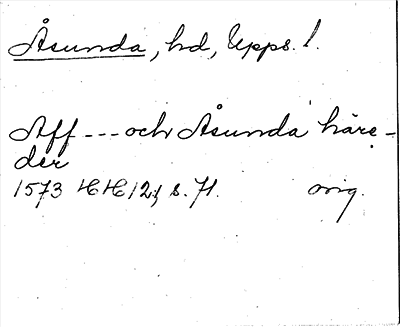 Åsunda, hd, Upps. l.
Aff --- och Åsunda häre-
der
1573 HH 12:, s. 71. orig.